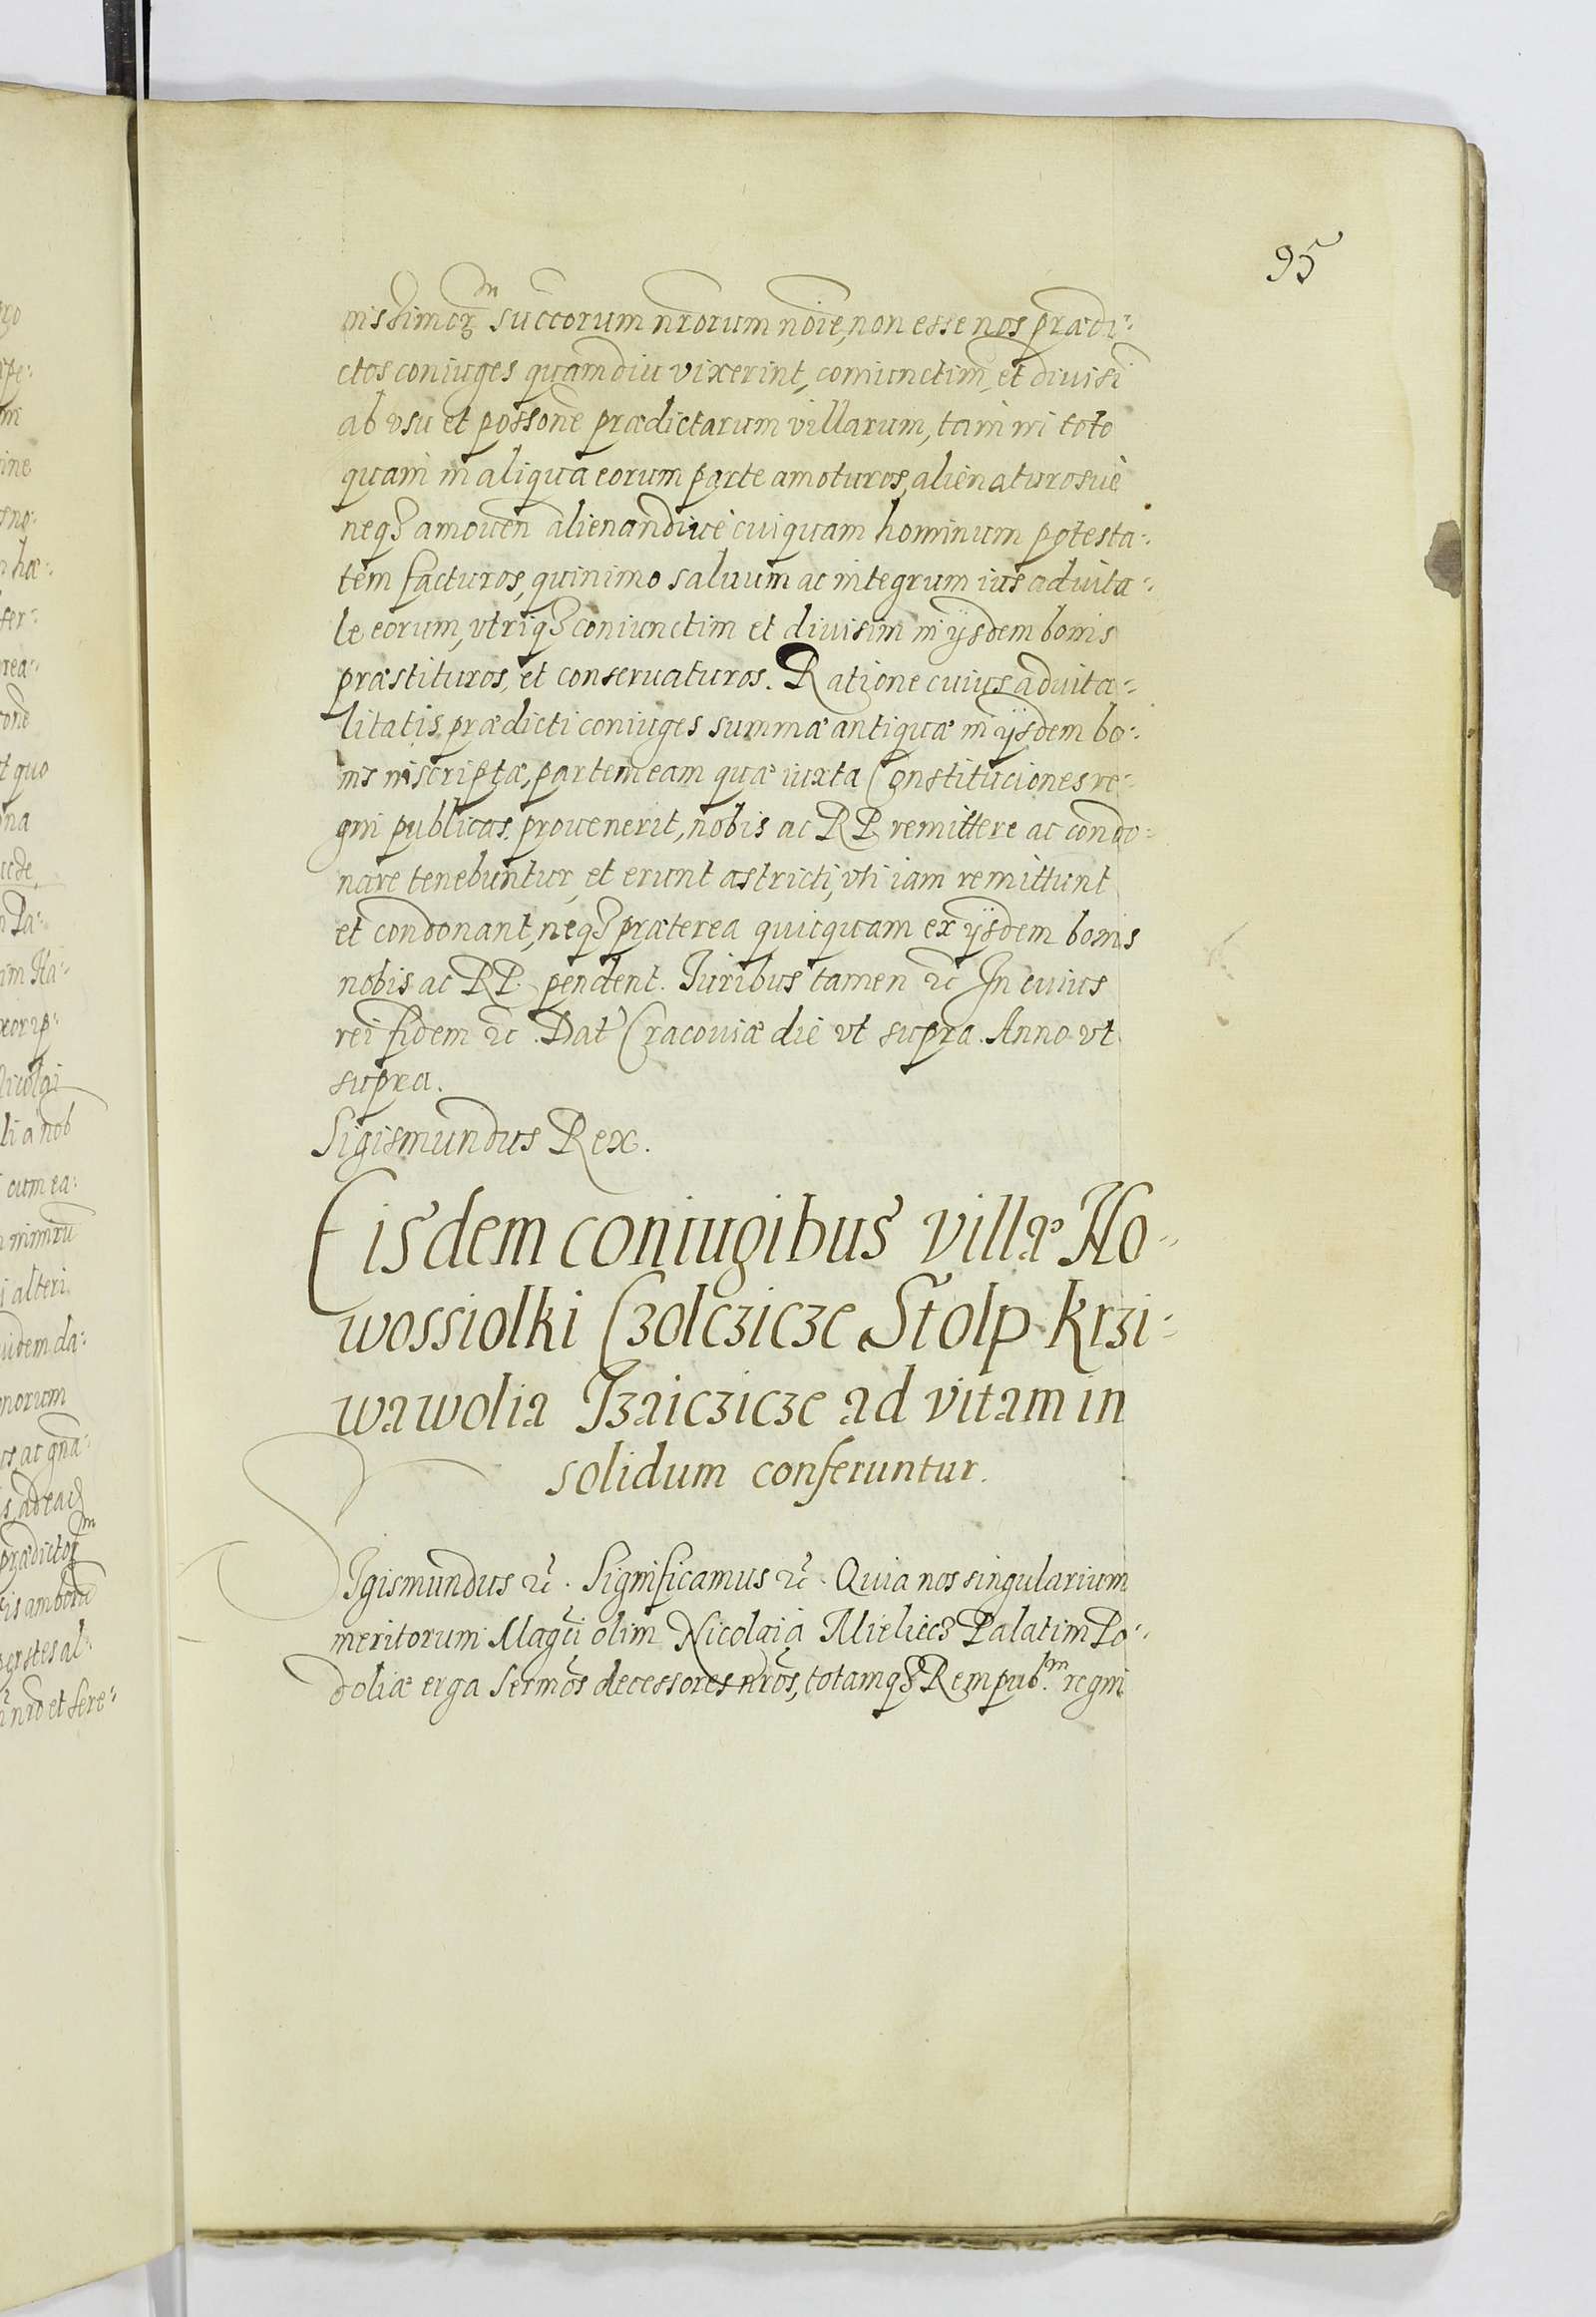 95
nissimorum succorum nrorum noie, non esse nos prædi-
ctos coniuges quamdiu vixerint, coniunctim et divisi
ab vsu et possone prædictarum villarum, tam in toto
quam in aliqua eorum parte amoturos, alienaturosue
neqꝫ amouen alienandiue cuiquam hominum potesta-
tem facturos, quinimo saluum ac integrum ius aduita-
le eorum, vtriqꝫ coniunctim et diuisim in ysdem bonis
præstituros, et conseruaturos. Ratione cuius aduita-
litatis, prædicti coniuges summæ antiquæ in ysdem bo-
nis inscriptæ, partem eam quæ iuxta Constituciones re-
gni publicas prouenerit, nobis ac RP. remittere ac condo-
nare tenebuntur, et erunt astricti, vti iam remittunt
et condonant, neqꝫ præterea quicquam ex ysdem bonis
nobis ac RP. pendent. Juribus tamen ꝛc In cuius
rei fidem ꝛc. Dat Cracouiæ die vt supra. Anno vt
supra.
Sigismundus Rex.
Eisdem coniugibus villæ No-
wossiolki Czolczicze Stolp Krzi-
wawolia Jzaiczicze ad vitam in
solidum conferuntur.
Sigismundus ꝛc. Significamus ꝛc. Quia nos singularium
meritorum Magci olim Nicolai à Mielecz Palatini Po-
doliæ erga Sermos decessores nros, totamqꝫ Rempub.m regni